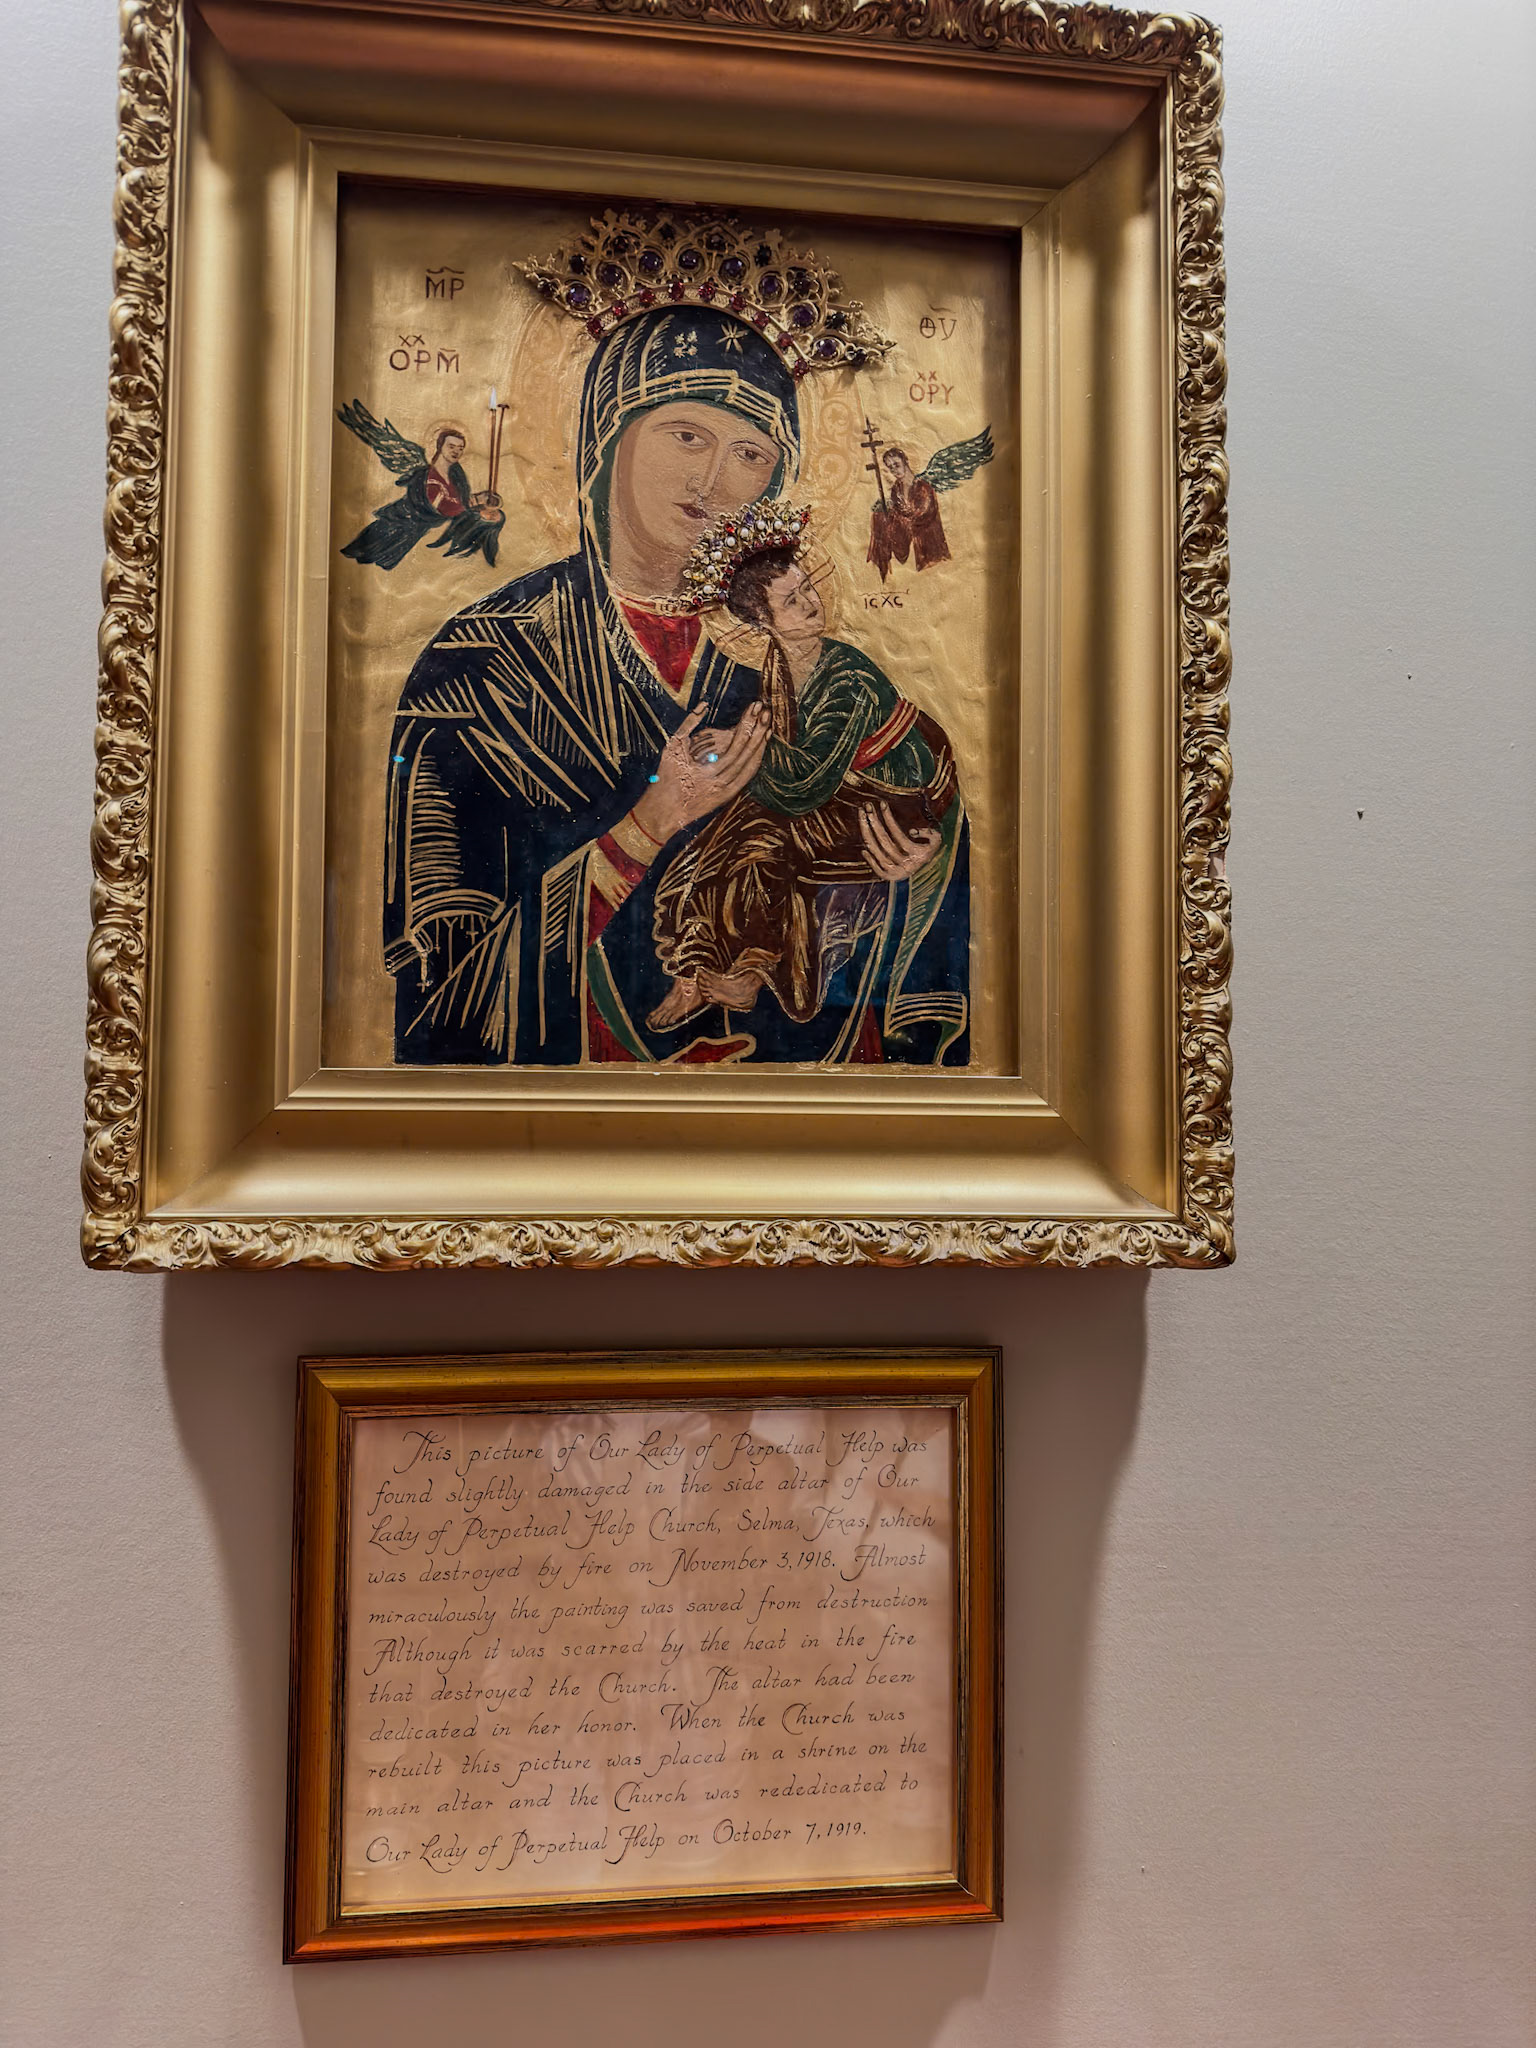 M̃P̃
θ̃Ỹ
ΟΡΜ̃
ΟΡΥ
ΙϹ ΧϹ
This picture of Our Lady of Perpetual Help was
found slightly damaged in the side altar of Our
Lady of Perpetual Help Church, Selma, Texas, which
was destroyed by fire on November 3, 1918. Almost
miraculously the painting was saved from destruction
Although it was scarred by the heat in the fire
that destroyed the Church. The altar had been
dedicated in her honor. When the Church was
rebuilt this picture was placed in a shrine on the
main altar and the Church was rededicated to
Our Lady of Perpetual Help on October 7, 1919.